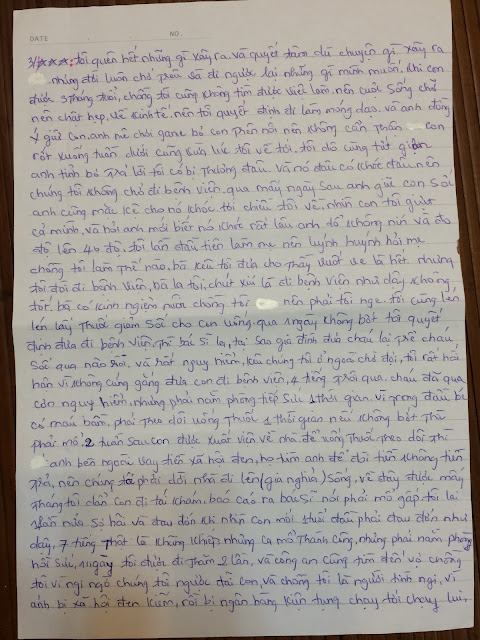 DATE NO.
3/ ★★★: tôi quên hết những gì xảy ra, và quyết tâm dù chuyện gì xảy ra
nhưng đời luôn chớ trêu và đi ngược lại những gì mình muốn, khi con
được 3 tháng tuổi, chồng tôi cũng không tìm được việc làm, nên cuộc sống chở
nên chật hẹp, về kinh tế, nên tôi quyết định đi làm móng dạo, và anh đồng
ý giữ con, anh mê chơi game bỏ con trên nôi nên không cẩn thận con
rớt xuống tuần dưới cùng sữa lúc tôi về tới, tôi dỗ cũng tức giận
anh tính bỏ trả lời tôi có bị thương đâu, và nó đâu có khóc đâu, nên
chúng tôi không chở đi bệnh viện, qua mấy ngày sau anh giữ con, sốt
anh cũng mặc kệ cho nó khóc, tôi chiều tối về, nhìn con tôi giựt
cả mình, và hỏi anh mới biết nó khóc rất lâu anh dỗ không nín và đo
độ lên 40 độ, tôi lần đầu tiên làm mẹ nên luýnh huýnh hỏi mẹ
chồng tôi làm thế nào, bà kêu tôi đưa cho thầy vuốt ve là hết nhưng
tôi đòi đi bệnh viện, bà la tôi, chút xíu là đi bệnh viện như vậy không
tốt, bà có kinh ngiệm nuôi chồng tôi nên phải tôi nge. tôi cũng lên
lén lấy thuốc giảm sốt cho con uống, qua 1 ngày không bớt tôi quyết
định đưa đi bệnh viện, thì bác sĩ la, tại sao gia đình đưa cháu lại trể cháu
sốt qua não rồi, và rất nguy hiểm, kêu chúng tôi ở ngoài chờ đợi, tôi rất hối
hận vì không cứng gắng đưa con đi bệnh viện, 4 tiếng trôi qua, cháu đã qua
cơn nguy hiểm, nhưng phải nằm phòng tiếp sức 1 thời gian. vì trong đầu bé
có máu bầm, phải theo dõi uống thuốc 1 thời gian nếu không bớt thì
phải mổ, 2 tuần sau con được xuất viện về nhà để uống thuốc theo dõi thì
anh bên ngoài vay tiền xã hội đen, họ tìm anh để đòi tiền không tiền
trả, nên chúng tôi phải dời nhà đi lên (gia nghĩa) sống, về đây được mấy
tháng tôi dẫn con đi tái khám, báo cáo ra bác sĩ nói phải mổ gấp tôi lại
1 lần nữa sợ hãi và đau đớn khi nhìn con mới 1 tuổi đầu phải đau đớn như
vậy, 7 tiếng thật là khủng khiếp nhưng ca mổ thành công, nhưng phải nằm phòng
hồi sức, 1 ngày tôi được đi thăm 2 lần, và công an cũng tìm đến vợ chồng
tôi vì ngi ngờ chúng tôi ngược đãi con, và chồng tôi là người tình ngi, vì
anh bị xã hội đen kiếm, rồi bị ngân hàng kiện tụng chạy tới chạy lui,